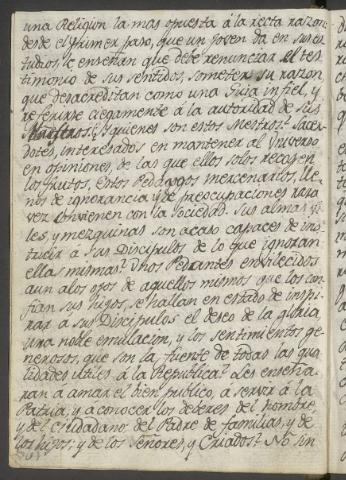 una Religion la mas opuesta á la recta razon
desde el primer paso, que un joven da en sus es
tudios, le enseñan que debe renunciar el tes
timonio de sus sentidos, someter su razon
que desacreditan como una Guia infiel, y
referirse ciegamente á la autoridad de sus
Maestros. ¿Y quienes son estos Mestros? Sacer
dotes, interesados en mantener al Universo
en opiniones, de las que ellos solos recogen
los frutos, estos Pedagogos mercenarios, lle
nos de ignorancia y de preocupaciones rara
vez convienen con la Sociedad. Sus almas vi
les, y mezquinas son acaso capaces de ins
truir á sus Discipulos de lo que ignoran
ellas mismas? Unos Pedantes envilecidos
aun a los ojos de aquellos mismos que los con
fian sus hijos, se hallan en estado de inspi
rar a sus Discipulos el deseo de la gloria
una noble emulacion, y los sentimientos ge
nerosos, que son la fuente de todas las qua
lidades utiles á la Republica? ales enseña
ran a amar el bien publico, a servir á la
Patria, y a conocer los deberes del hombre,
y del ciudadano; del Padre de familias, y de
los hijos; y de los Señores, y Criados? No sin